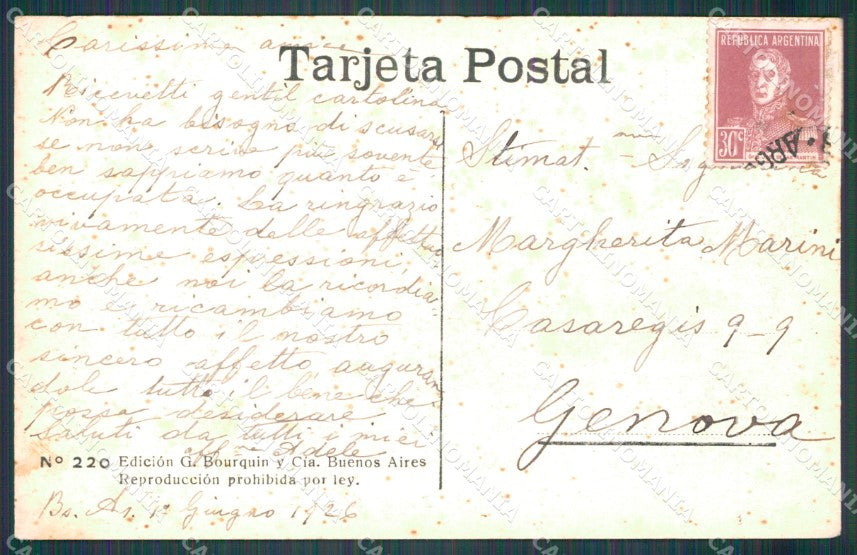 Carissima amica
Tarjeta Postal
Ricevetti gentil cartolina
Non ha bisogno di scusarsi
se non scrive più sovente
ben sappiamo quanto è
occupata. La ringrazio
vivamente delle affettuo
sissime espressioni,
anche noi la ricordia
mo e ricambiamo
con tutto il nostro
sincero affetto auguran
dole tutto il bene che
possa desiderare
Saluti da tutti i miei
Adele
Nº 220 Edición G. Bourquin y Cía. Buenos Aires
Reproducción prohibida por ley.
Bs. As. 1º Giugno 1926
REPUBLICA ARGENTINA
30c
ARG
Stimat. ma Signorina
Margherita Marini
Casaregis 9-9
Genova
CARTOLINOMANIA